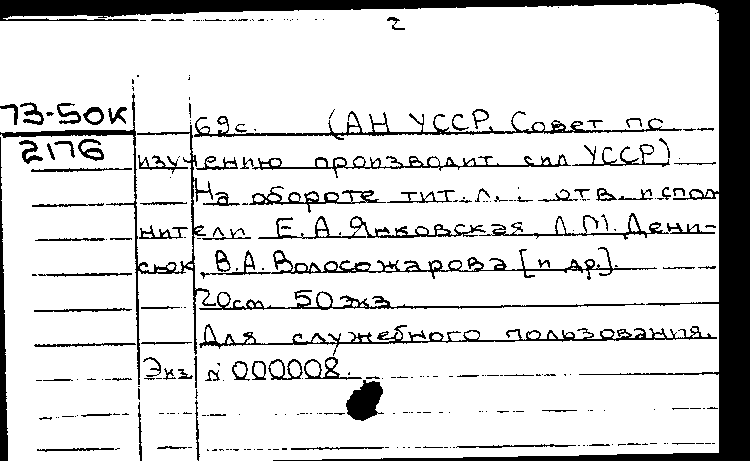 2
73-50К
2176
69с. (АН УССР. Совет по
изучению производит. сил УССР)
На обороте тит.л.: отв. испол
нители Е.А.Янковская, Л.М.Дени-
сюк, В.А.Волосожарова [и др.].
20см. 50 экз.
Для служебного пользования.
Экз № 000008.